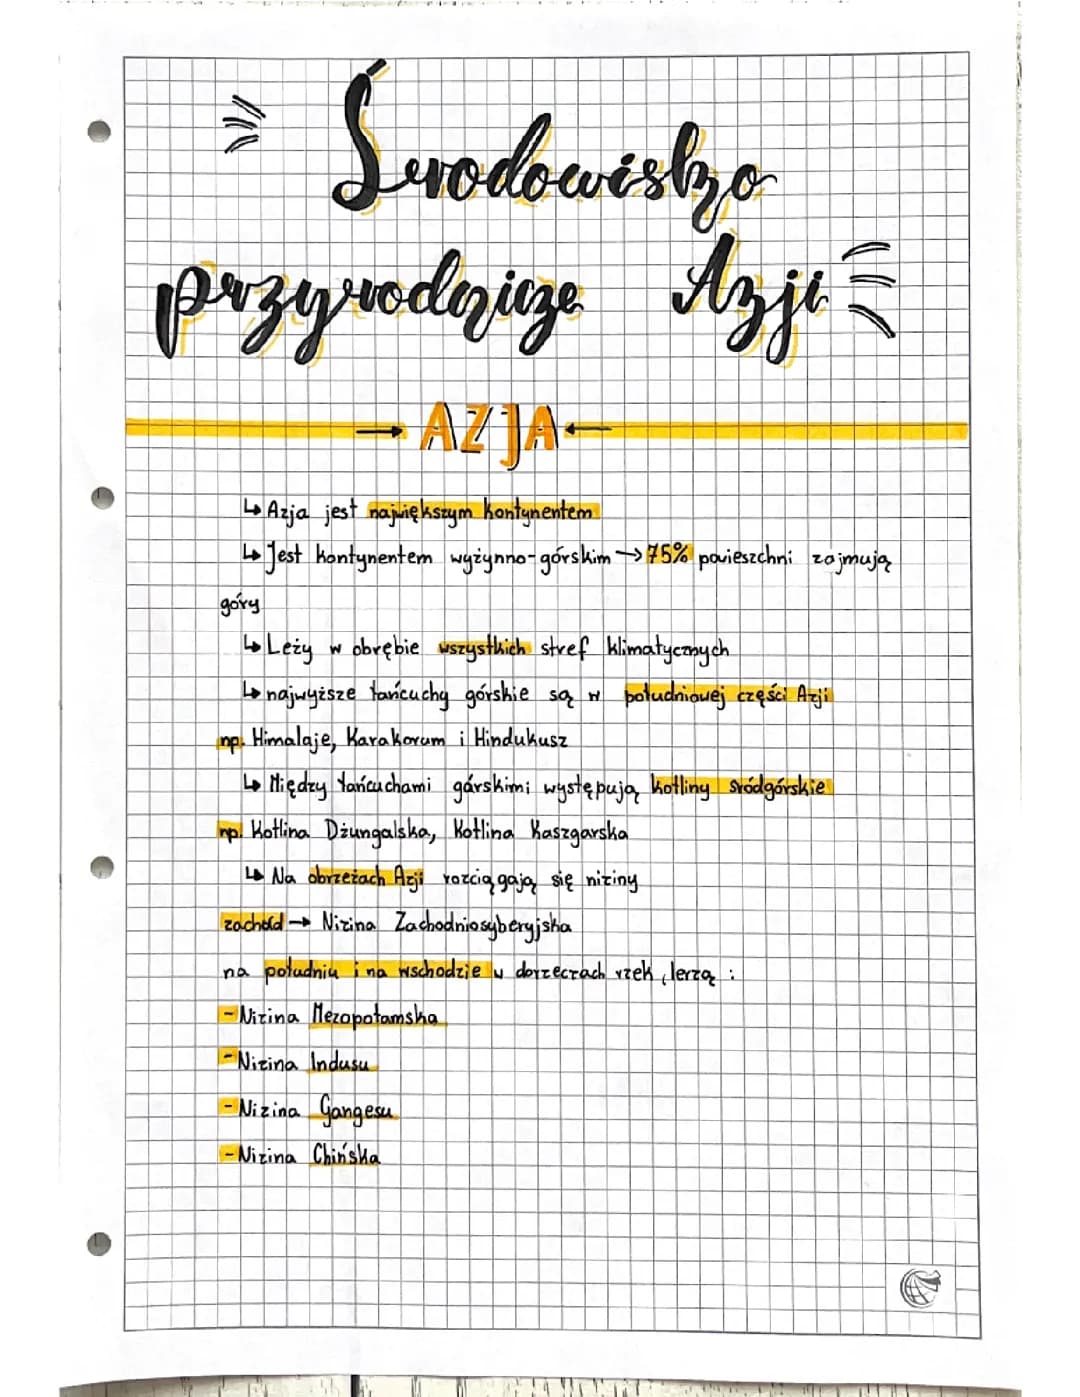 Środowisko
przyrodnicze Azji
→ AZJA ←
↳ Azja jest największym kontynentem
↳ Jest kontynentem wyżynno-górskim → 75% powieszchni zajmują
góry
↳ Leży w obrębie wszystkich stref klimatycznych
↳ najwyższe łańcuchy górskie są w południowej części Azji
np. Himalaje, Karakorum i Hindukusz
↳ Między łańcuchami górskimi występują kotliny śródgórskie
np. Kotlina Dżungalska, Kotlina Kaszgarska
↳ Na obrzeżach Azji rozciągają się niziny
zachód → Nizina Zachodniosyberyjska
na południu i na wschodzie w dorzeczach rzek, lerzą :
- Nizina Mezopotamska
- Nizina Indusu
- Nizina Gangesu
- Nizina Chińska